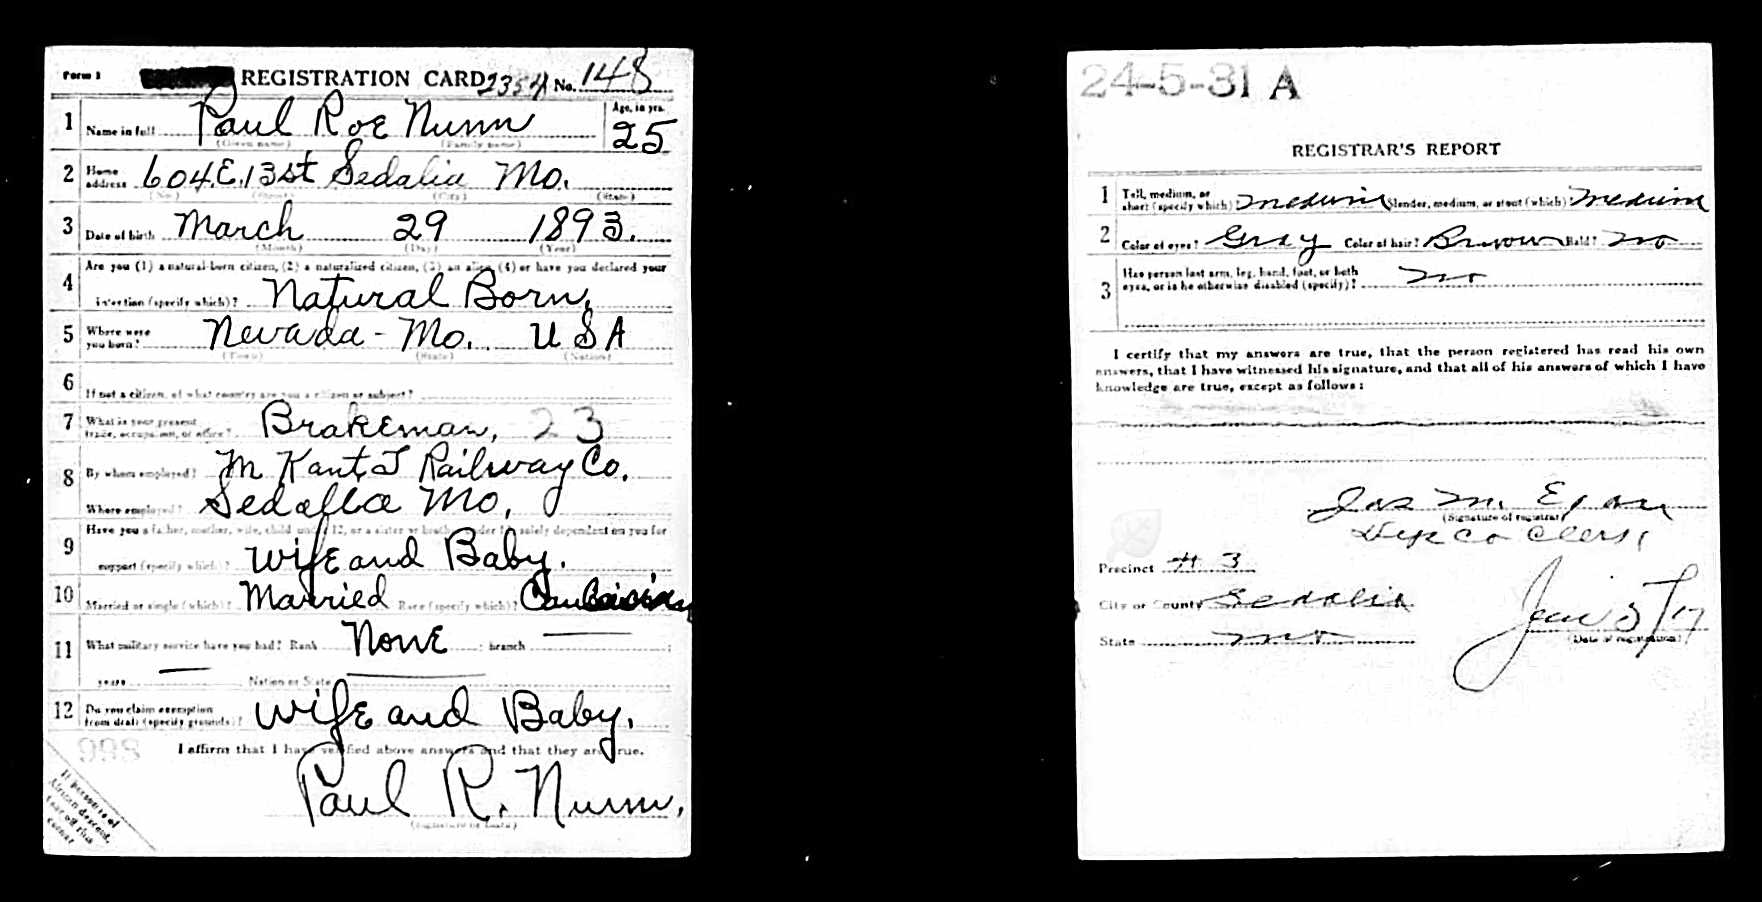 Form 1 REGISTRATION CARD 2354 No. 148
1 Name in full Paul Roe Nunn Age, in yrs. 25
(Given name) (Family name)
2 Home address 604 E. 13 st Sedalia Mo.
(No.) (Street) (City) (State)
3 Date of birth March 29 1893.
(Month) (Day) (Year)
4 Are you (1) a natural-born citizen, (2) a naturalized citizen, (3) an alien, (4) or have you declared your
intention (specify which)? Natural Born.
5 Where were you born? Nevada - Mo. U S A
(Town) (State) (Nation)
6 If not a citizen, of what country are you a citizen or subject?
7 What is your present trade, occupation, or office? Brakeman, 23
8 By whom employed? M K and T Railway Co.
Where employed? Sedalia Mo.
9 Have you a father, mother, wife, child under 12, or a sister or brother under 12, solely dependent on you for
support (specify which)? Wife and Baby.
10 Married or single (which)? Married Race (specify which)? Caucasian
11 What military service have you had? Rank None ; branch ;
years Nation or State
12 Do you claim exemption from draft (specify grounds)? Wife and Baby.
998 I affirm that I have verified above answers and that they are true.
Paul R. Nunn.
(Signature or mark)
If person is of
African descent,
tear off this
corner
24-5-31 A
REGISTRAR'S REPORT
1 Tall, medium, or short (specify which)? medium Slender, medium, or stout (which)? medium
2 Color of eyes? Gray Color of hair? Brown Bald? no
3 Has person lost arm, leg, hand, foot, or both
eyes, or is he otherwise disabled (specify)? no
I certify that my answers are true, that the person registered has read his own
answers, that I have witnessed his signature, and that all of his answers of which I have
knowledge are true, except as follows:
Jas M.
(Signature of registrar)
Dep Co Clerk
Precinct # 3
City or County Sedalia
State Mo
June 5/17
(Date of registration)